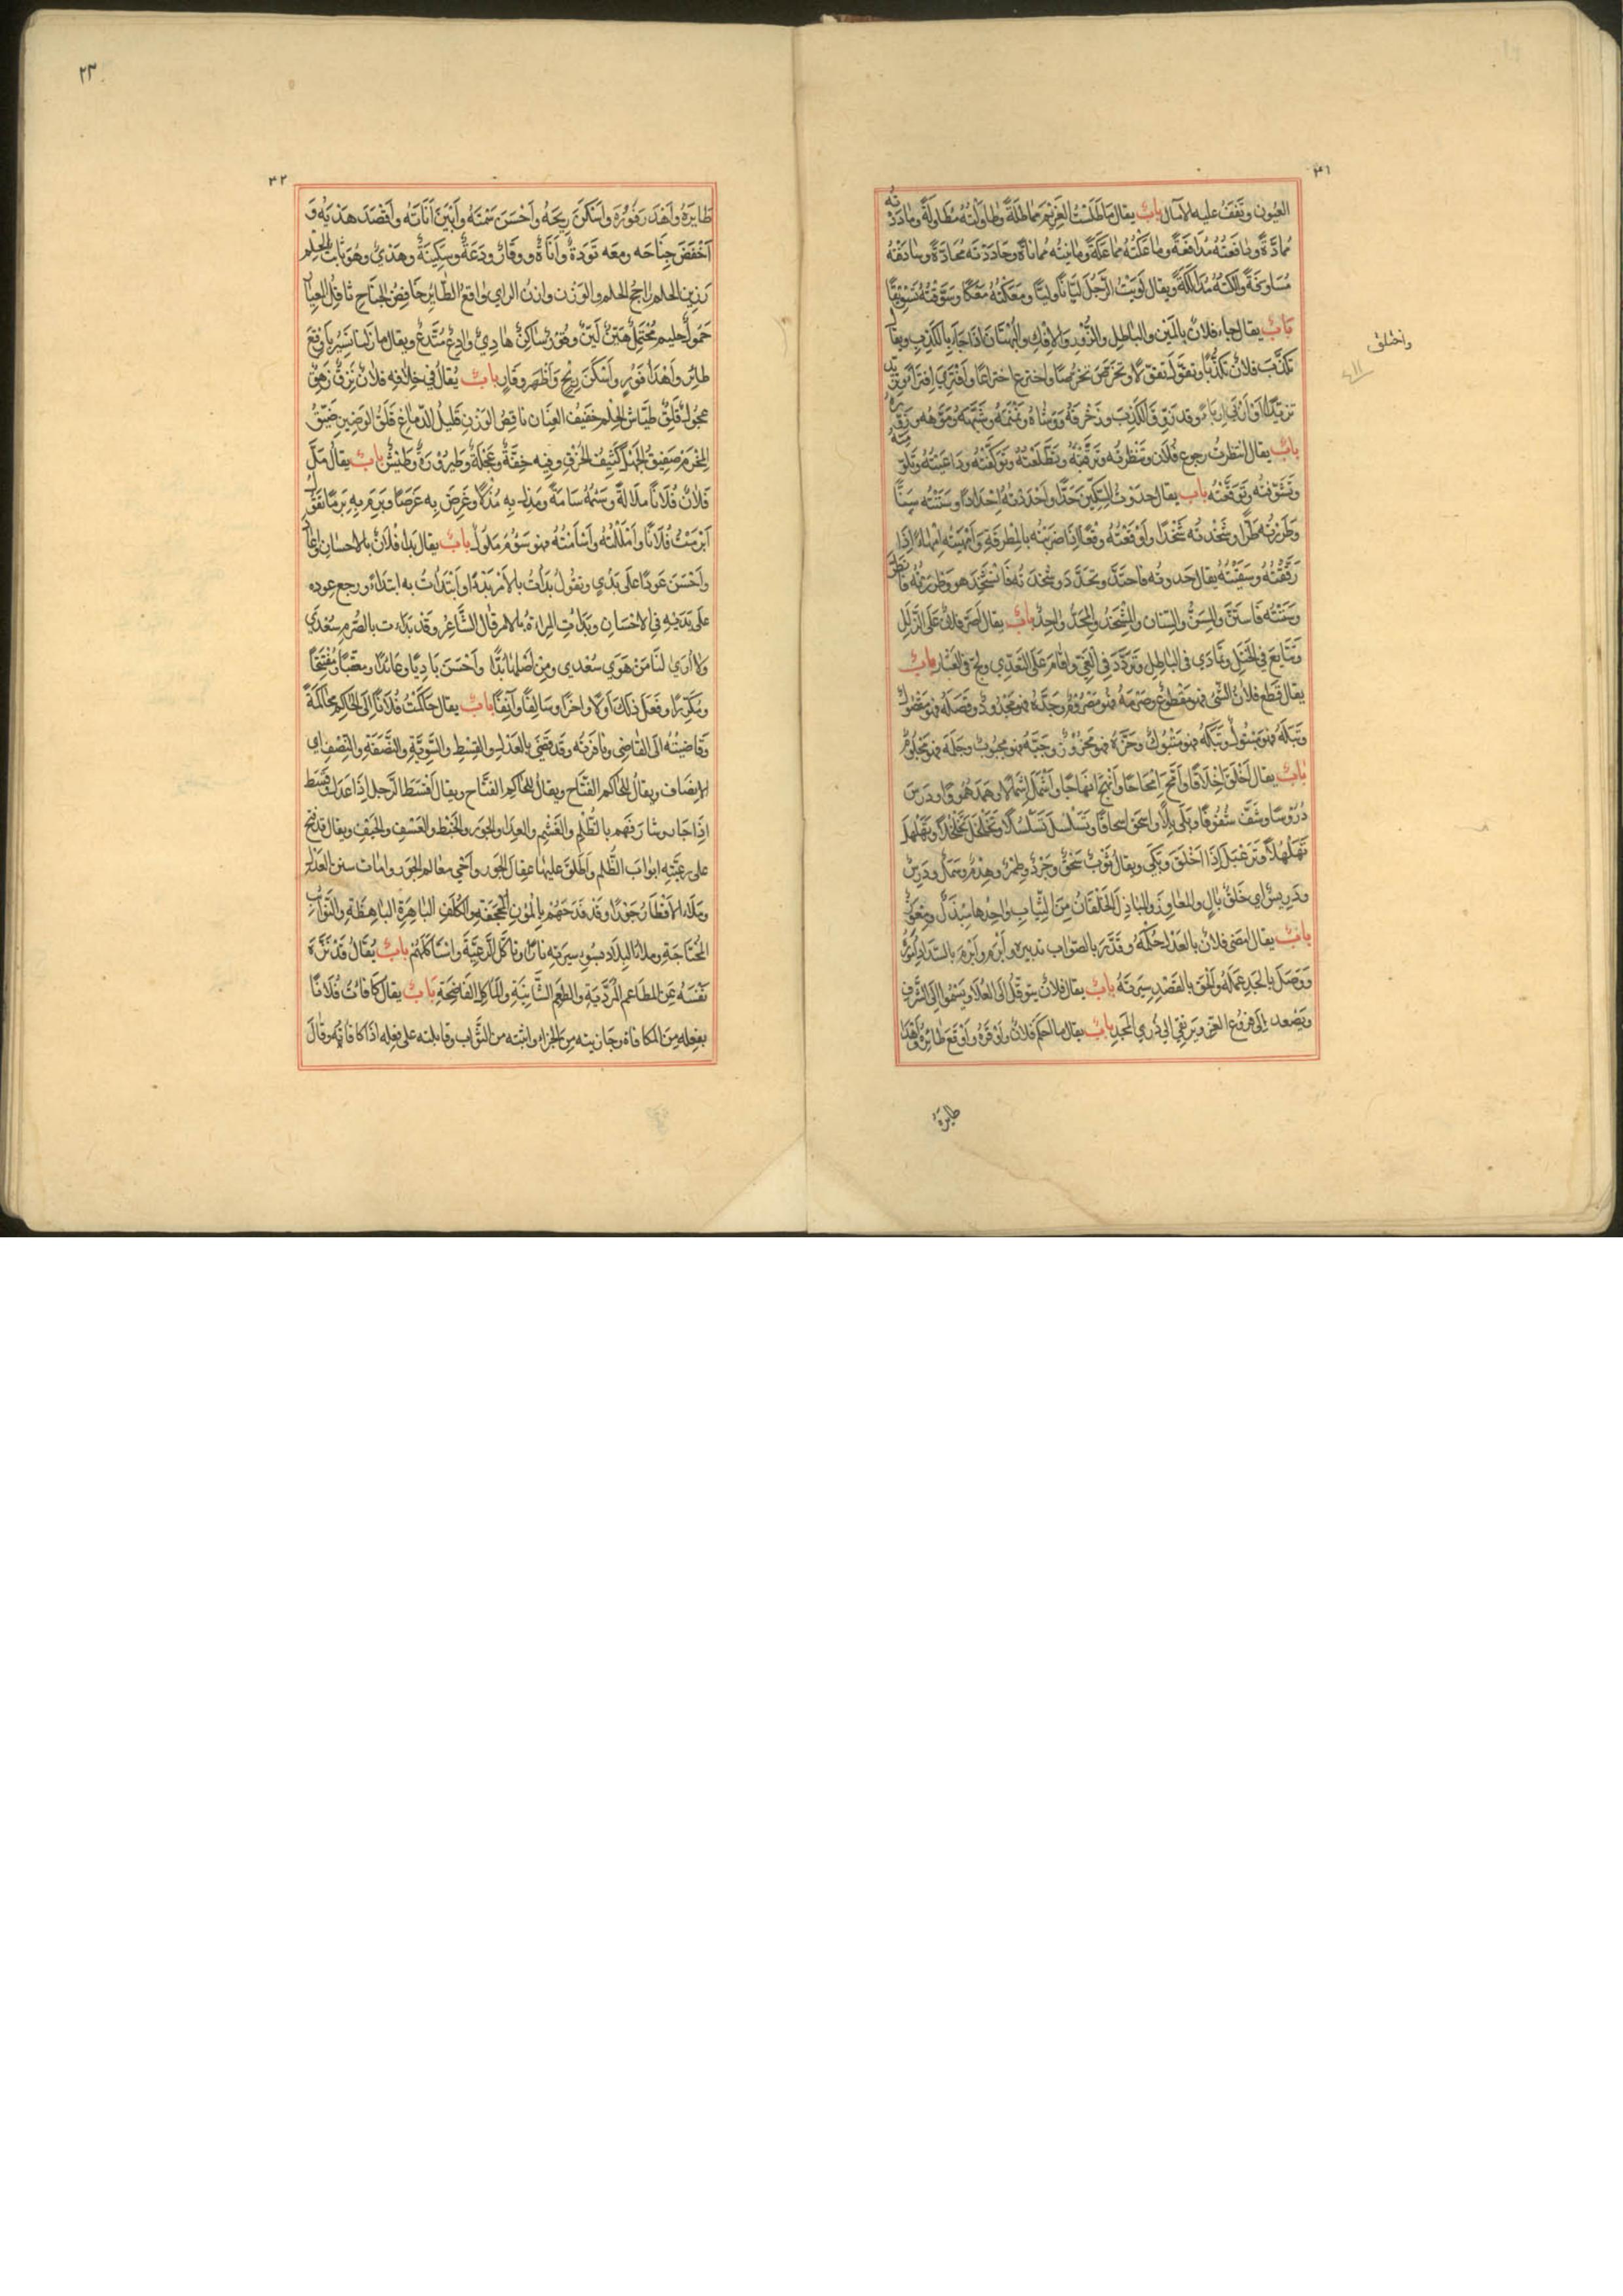 ٣١
العيون وتقف عليه الآمال باب يقال ماطلت الغريم مماطلة وطاولته مطاولة وماددته
مُمادّة ودافعته مُدافعة وماعكته مماعكة ومانيته مماناة وحاددته محادّة
ويقال لويت الرّجل ليّانا وليّا ومعكته معكا وسوّفته تسويفا
باب يقال جاء فلان بالمين والباطل والزّور والافك والبهتان اذا جاء بالكذب ويقال
تكذّب فلان تكذّبا وتخرّص تخرّصا واخترع اختراعا وافترى افتراء
وقد زوّق الكذب وزخرفه ووشّاه ونمنمه وشبّهه وموّهه
باب يقال انتظرت رجوع فلان وتنظّرته وترقّبته وتطلّعته وتوكّفته وراعيته
وتشوّفته وتوقّعته باب يقال حددت السكّين حدّا واحددته احدادا وسننته سنّا
وطررته طرّا وشحذته شحذا واوقعته وقعا اذا ضربته بالمطرقة وامهيته امهاء اذا
رققته وسقيته يقال حددته فاحتدّ وتحدّد وشحذته فانشحذ هو وطررته
وسننته فاستنّ والمسنّ والسنان والمشحذ والمحدّ واحد باب يقال اصرّ فلان على الزّلل
وتتابع في الخطل وتمادى في الباطل وتردّد في الغيّ واقام على التعدّي ولجّ في باب
يقال قطع فلان الشّئ فهو مقطوع وصرمه فهو مصروم وجذّه فهو مجذوذ وفصله فهو مفصول
وبتله فهو مبتول وبتكه فهو مبتوك وحزّه فهو محزوز وجبّه فهو مجبوب وجلمه فهو مجلوم
باب يقال اخلق اخلاقا وامحّ امحاحا وانهج انهاجا واسمل اسمالا وهمد همودا ودرس
دُروسا وشفّ شفوفا وبلى بلاء واسحق اسحاقا وتسلسل تسلسلا وتخلخل تخلخلا وتهلهل
تهلهلا وترعبل اذا اخلق وبلى ويقال ثوب سحق وجرد وطمر وهدم وسمل ودرس
ودريس اي خلق بال والمعاوز والمباذل الخلقان من الثّياب واحدها مبذل ومعوز
باب يقال امضى فلان بالعدل حكمه وقدّر بالصّواب تدبيره وابرم بالسّداد امره
ووصل بالجد عمله والحق بالقصد سيرته باب يقال فلان يتوقّل الى العلا ويسمو الى الشّرف
ويصعد الى فروع العزّ ويرتقي الى ذرى المجد باب يقال ما احكم فلانا واوقره واوقع طائره واهدا
طايره
واختلق
٢٣
٣٢
طايره واهدر فوره واسكن ريحه واحسن سمته وابين اناته واقصد هديه و
اخفض جناحه ومعه تودة واناة ووقار ودعة وسكينة وهدي وهو ثابت الحلم
رزين الحلم راجح الحلم والوزن وازن الراي واقع الطّاير خافض الجناح
حمول حليم محتمل هيّن ليّن وقور ساكن هادي وادع متّدع ويقال ما زلنا نسير باوقع
طائر واهدا فور واسكن ريح واظهر وقار باب يُقال في خلافه فلان نزق زهق
عجول قلق طيّاش الحلم خفيف العنان ناقص الوزن قليل الدّماغ قلق الوضين ضيّق
المخرم صفيق الجهل كثيف الخرق وفيه خفّة وعجلة وطيرورة وطيش باب يقال ملّ
فلان فلانا ملالة وسئمه سآمة ومذل به مذلا وغرض به غرضا وبرم به برما
ابرمت فلانا واملّلته واسامته فهو سؤم ملول باب يقال بدا فلان بالاحسان
واحسن عودا على بدي وتقول بدأت بالامر بدءا وابتدأت به ابتداء ورجع عوده
على بديه في الاحسان وبدات المراة بالامر قال الشّاعر وقد بدات بالصّرم سُعدى
ولا ارى لنا من هوى سُعدى ومن اصلها بُدّا واحسن باديا وعائدا ومعقّبا ومفتتحا
ومكرّرا وفعل ذلك اولا واخرا وسالفا وآنفا باب يقال حاكمت فُلانا الى الحاكم محاكمة
وقاضيته الى القاضي ونافرته وقد قضى بالعدل والقسط والسّويّة والنّصفة والنّصف اي
الانصاف ويقال للحاكم الفتّاح ويقال اقسط الرّجل اذا عدل وقسط
اذا جار بالظّلم والغشم والعدا والجور والخبط والعسف والحيف ويقال قد فتح
على رعيّته ابواب الظّلم واطلق عليها عقال الجور واحيى معالم الجور وامات سنن العدل
وملاء الاقطار جورا وقد فدحهم بالمؤن المجحفة والكلف الباهرة الباهظة والنّوائب
المجتاحة وملا البلاد بسوء سيرته نارا وتاكّل الرّعيّة واستاكلهم باب يُقال قد نزّه
نفسه عن المطاعم المرديّة والطعم الشّائنة والمآكل الفاضحة باب يقال كافات فُلانا
بفعله من المكافاة وجازيته من الجزاء واثبته من الثّواب وقابلته على فعله اذا كافاته وقال